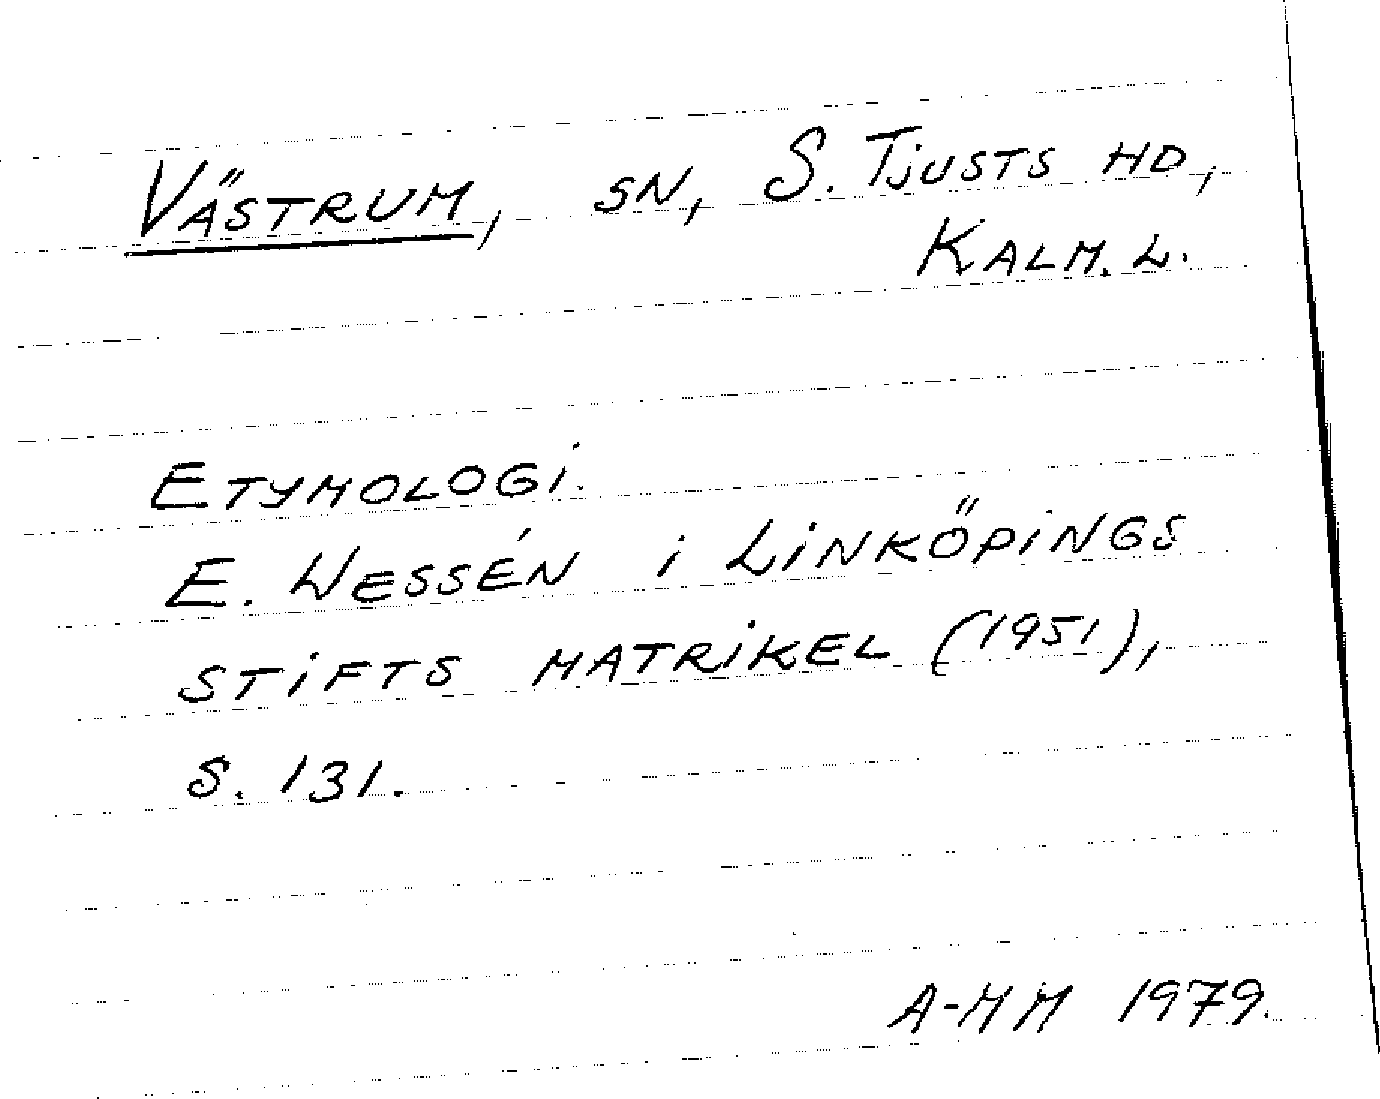 VÄSTRUM, SN, S. TJUSTS HD,
KALM. L.
ETYMOLOGI.
E. WESSÉN i LINKÖPINGS
STIFTS MATRIKEL (1951),
S. 131.
A-MM 1979.